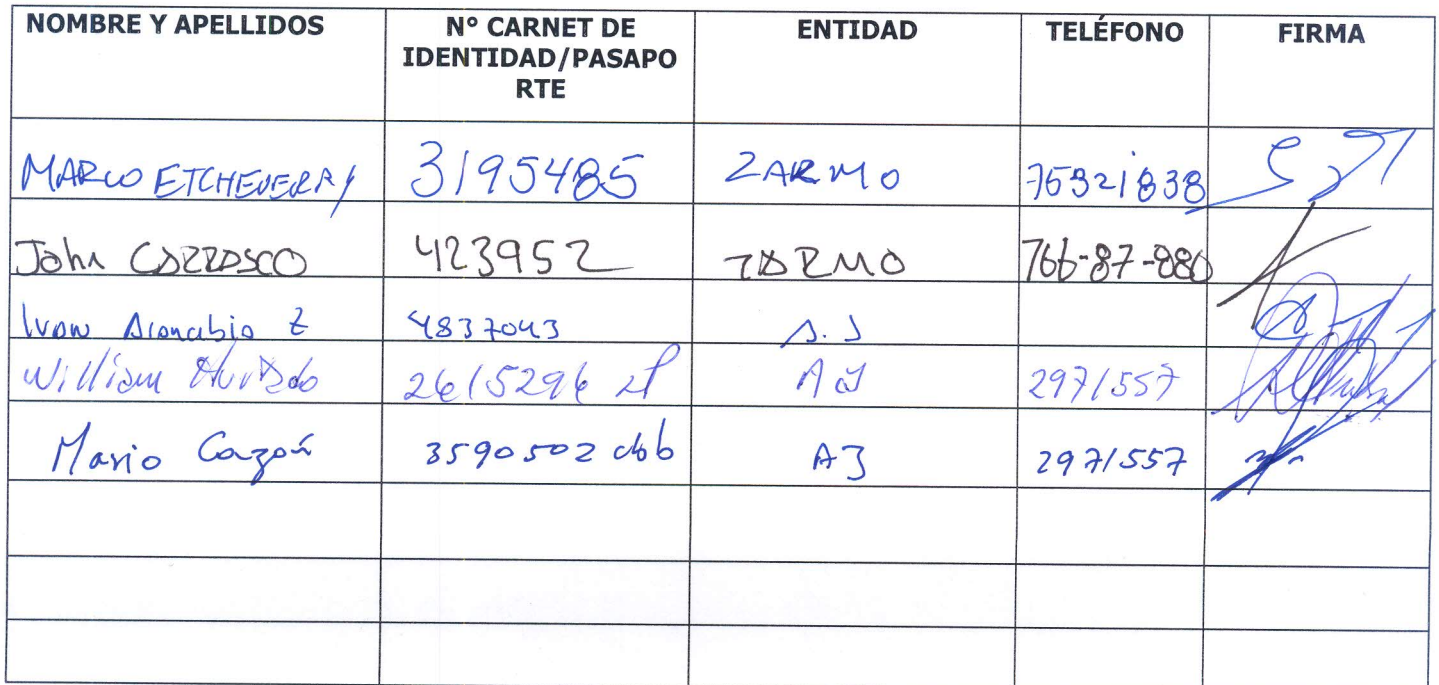 NOMBRE Y APELLIDOS Nº CARNET DE IDENTIDAD/PASAPO RTE ENTIDAD TELÉFONO FIRMA
MARCO ETCHEVERRY 3195485 ZARMO 76321838
John CARRASCO 423952 ZARMO 766-87-880
Ivan Arancibia Z 4837043 A.J
William Hurtado 2615296 LP AJ 2971557
Mario Cazón 3590502 cbb AJ 2971557